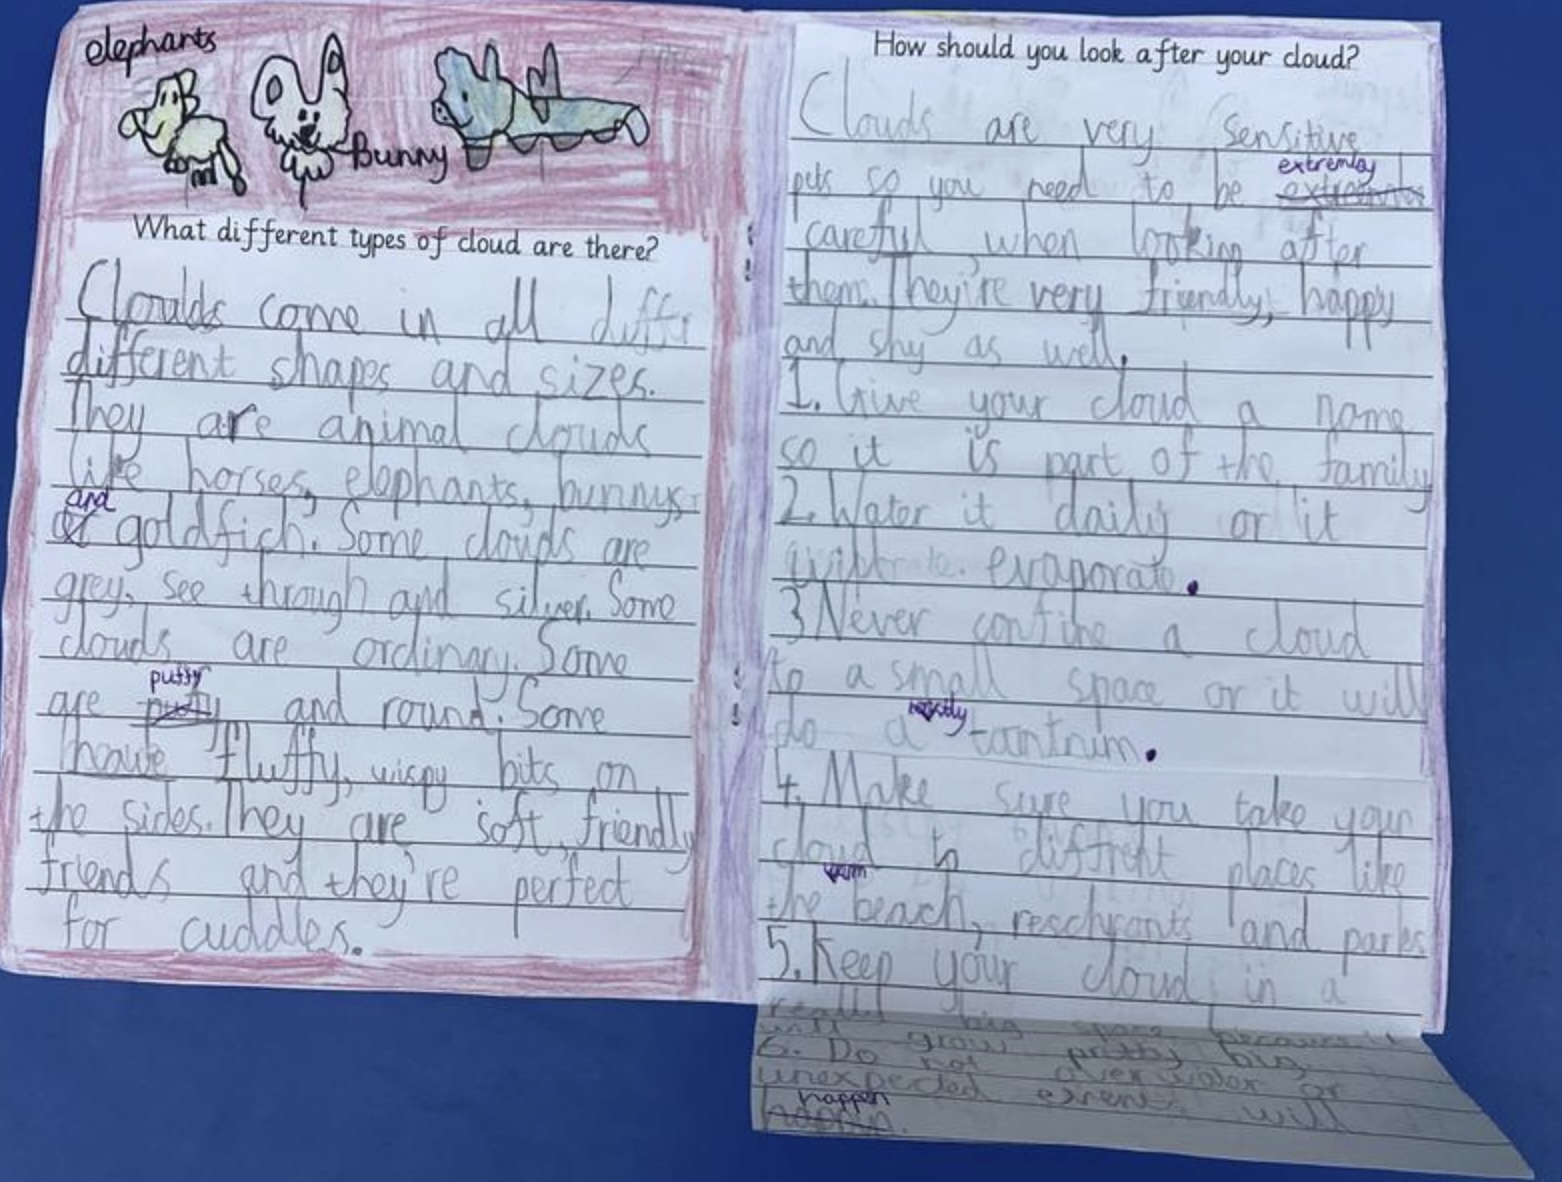 elephants
Bunny
What different types of cloud are there?
Cloulds come in all diffr
different shapes and sizes.
They are animal clouds
like horses, elephants, bunnys
and
goldfich. Some clouds are
grey, see through and silver. Some
clouds are ordinary. Some
puffy
are and round. Some
have fluffy, wispy bits on
the sides. They are soft, friendly
friends and they're perfect
for cuddles.
How should you look after your cloud?
Clouds are very sensitive
extremley
pets so you need to be
careful when looking after
them. They're very friendly, happy
and shy as well.
1. Give your cloud a name
so it is part of the family
2. Water it daily or it
evaporate.
3 Never confine a cloud
to a small space or it will
do a tantrum.
4. Make sure you take your
cloud to diffrent places like
the beach, reschrants and parks
5. Keep your cloud in a
really big space because it
will grow pretty big
6. Do not over water or
unexpected events will
happen